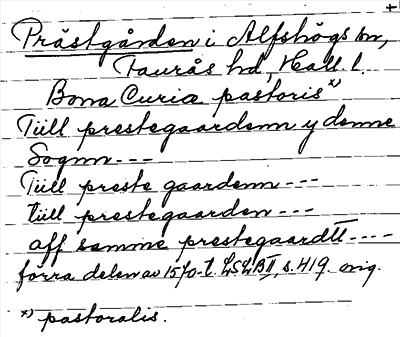 +
Prästgården i Alfshögs sn,
Faurås hd, Hall. l.
Bona Curiæ pastoris x)
Tiill prestegaardenn y denne
Sognn---
Tiill preste gaardenn---
tiill prestegaarden---
aff samme prestegaardtt----
förra delen av 1570-t. LSLB II, s. 419. orig.
x) pastoralis.